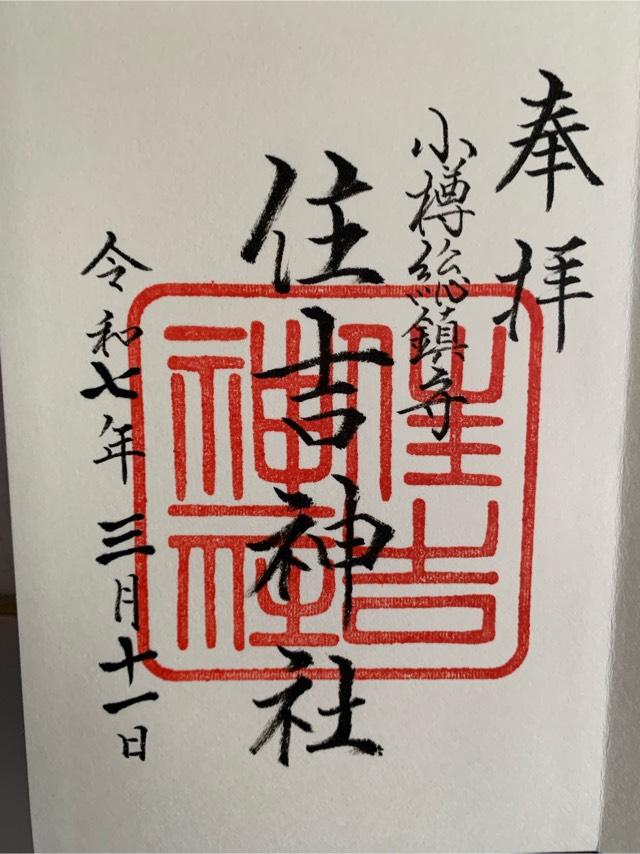 奉拝
小樽総鎮守
住吉神社
令和七年三月十一日
住吉
神社